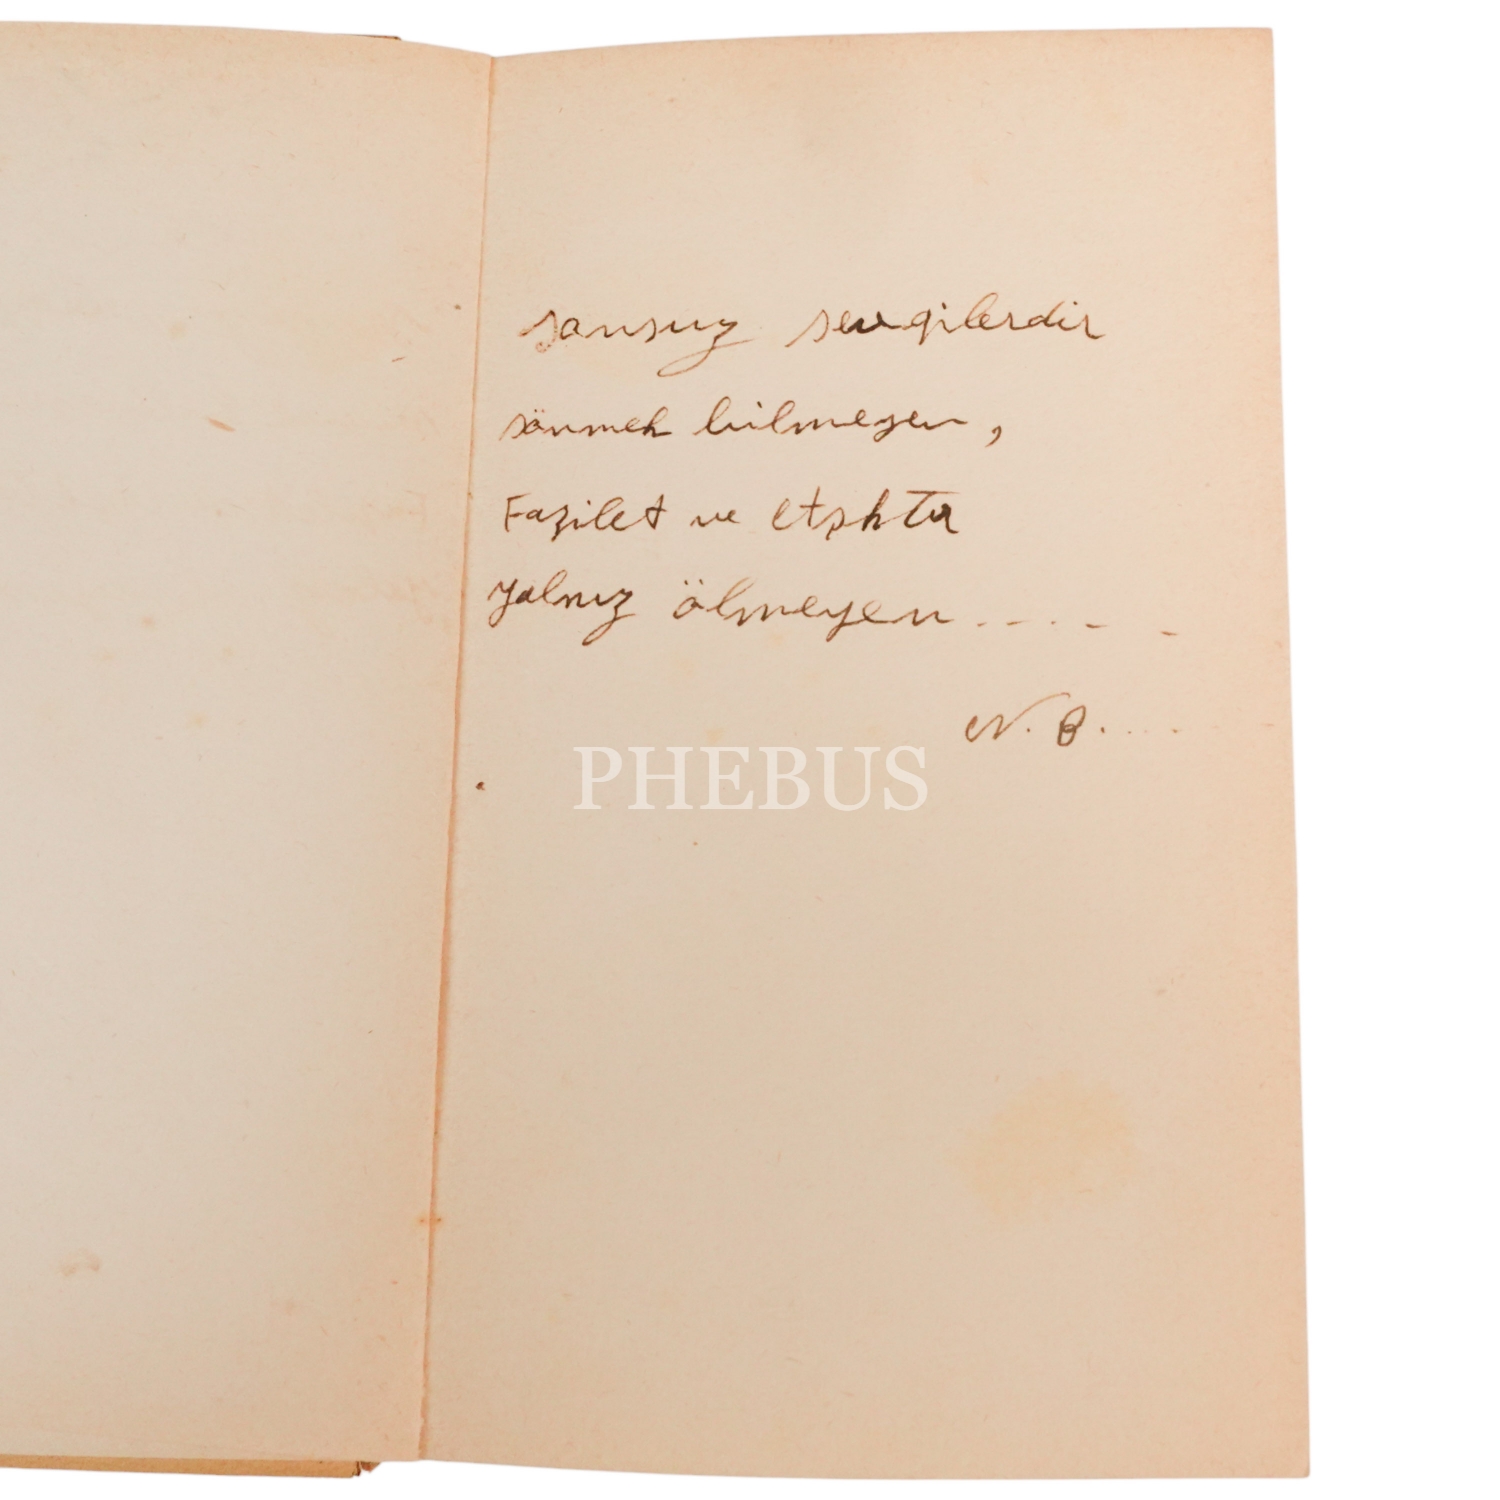 sonsuz sevgilerdir
sönmek bilmeyen,
Fazilet ve
yalnız ölmeyen.....
N. B.....
PHEBUS